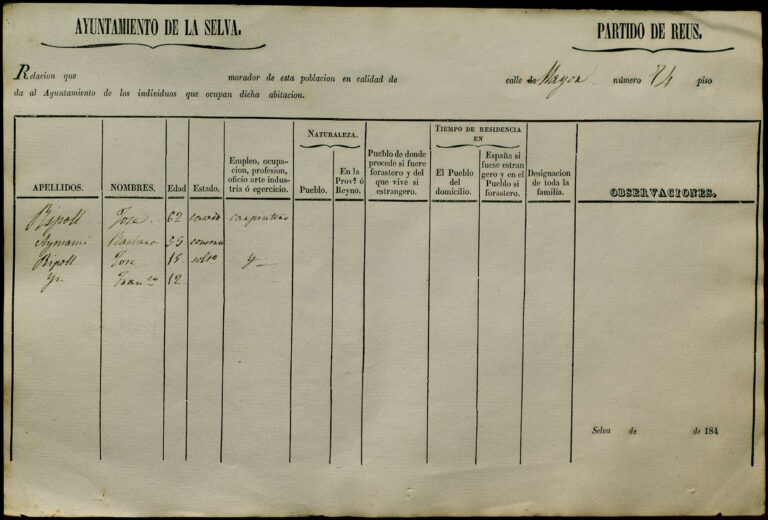 AYUNTAMIENTO DE LA SELVA.
PARTIDO DE REUS.
Relacion que morador de esta poblacion en calidad de calle de Mayor número 74 piso
da al Ayuntamiento de los individuos que ocupan dicha abitacion.
APELLIDOS.
NOMBRES.
Edad
Estado.
Empleo, ocupa-
cion, profesion,
oficio arte indus-
tria ó egercicio.
NATURALEZA.
Pueblo.
En la
Prov.ª ó
Reyno.
Pueblo de donde
procede si fuere
forastero y del
que vive si
estrangero.
TIEMPO DE RESIDENCIA
EN
El Pueblo
del
domicilio.
España si
fuese estran
gero y en el
Pueblo si
forastero.
Designacion
de toda la
familia.
OBSERVACIONES.
Ripoll Jose 62 casado carpintero
Aymami Barbara 55
Ripoll Jose 18 soltro Y
Yd. Franco 12
Selva de de 184